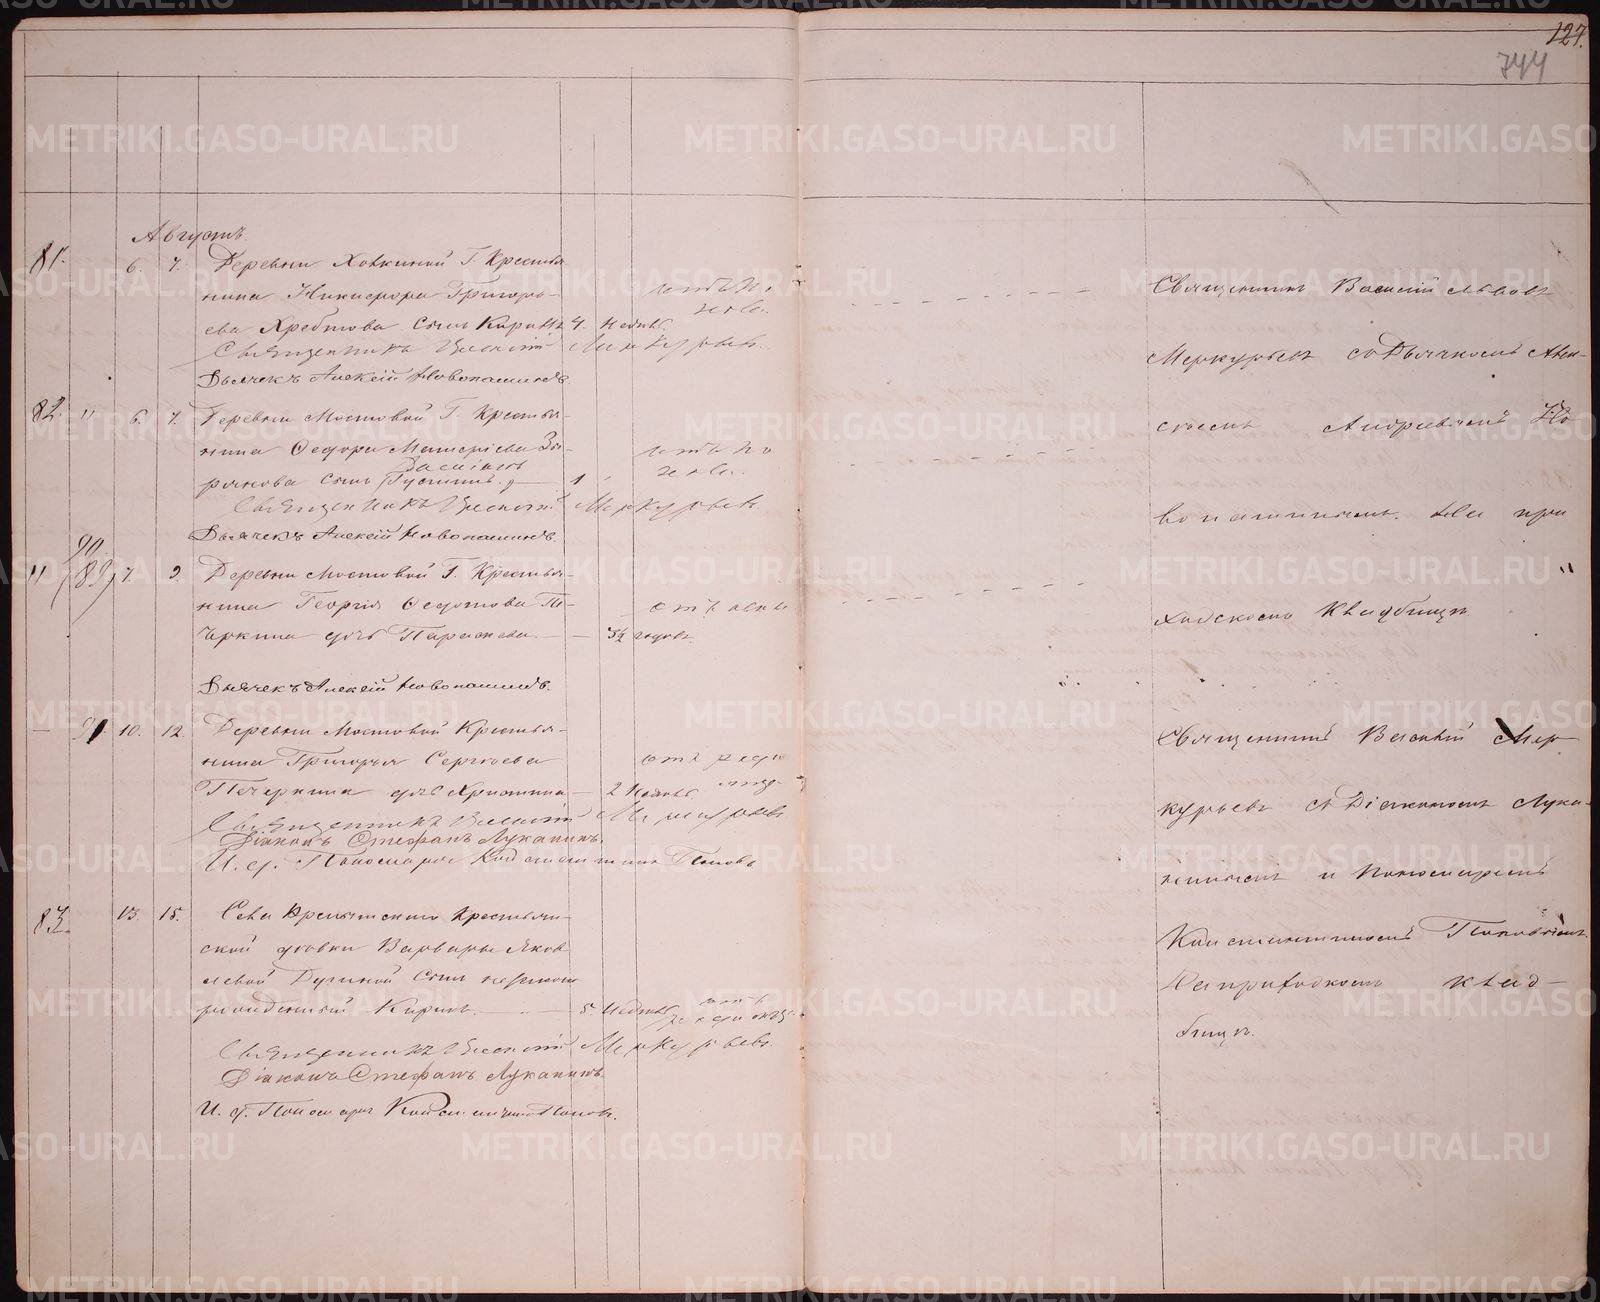 127.
744
Августъ.
81. 6. 7. Деревни Ховкиной Г. Крестья
нина Никифора Григорь-
ева Хребтова сынъ 4. недѣль.
Священникъ Василій Меркурьевъ.
Дьячекъ Алексій Новопашинъ.
82. " 6. 7. Деревни Мостовой Г. Крестья-
нина Ѳедора
сынъ 1
Священникъ Василій Меркурьевъ.
Дьячекъ Алексій Новопашинъ.
90.
" 89 7. 9. Деревни Мостовой Г. Крестья-
нина Георгія Ѳедотова Пе-
черкина дочь Параскева 3½ годовъ.
Дьячекъ Алексій Новопашинъ.
— 91. 10. 12. Деревни Мостовой Крестья-
нина Григорья Сергѣева
Печеркина дочь Христина 2 недѣль
Священникъ Василій Меркурьевъ
Діаконъ Стефанъ Луканинъ.
И. д. Пономаря Константинъ Поповъ
83. 13. 15. Села Крестьян-
ской дѣвки Варвары Яков-
левой сынъ незаконно
рожденный Кирилъ. 5 недѣль
Священникъ Василій Меркурьевъ.
Діаконъ Стефанъ Луканинъ.
И. д. Пономаря Константинъ Поповъ.
Священникъ Василій Львовъ
Меркурьевъ съ Дьячкомъ Алек-
сѣемъ Андреевымъ Но
вопашинымъ. На при
ходскомъ кладбищѣ
Священникъ Василій Мер
курьевъ съ Діакономъ Лука-
нинымъ и Пономаремъ
Константиномъ Поповымъ.
На приходскомъ клад-
бищѣ.
METRIKI.GASO-URAL.RU